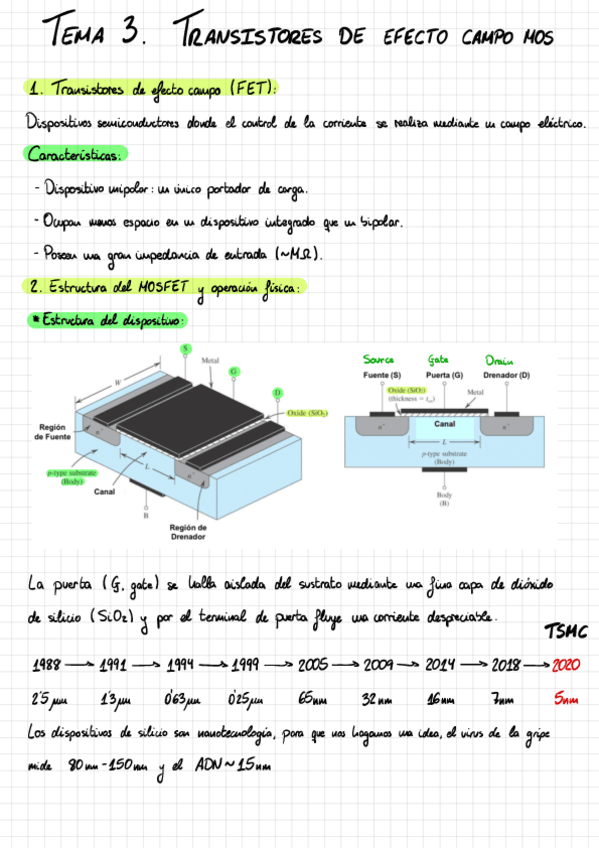 TEMA 3. TRANSISTORES DE EFECTO CAMPO MOS
1. Transistores de efecto campo (FET):
Dispositivos semiconductores donde el control de la corriente se realiza mediante un campo eléctrico.
Características:
- Dispositivo unipolar: un único portador de carga.
- Ocupan menos espacio en un dispositivo integrado que un bipolar.
- Poseen una gran impedancia de entrada (~MΩ).
2. Estructura del MOSFET y operación física:
* Estructura del dispositivo:
S
Metal
G
W
D
Oxide (SiO₂)
Región de Fuente
n⁺
L
n⁺
p-type substrate (Body)
Canal
B
Región de Drenador
Source Gate Drain
Fuente (S) Puerta (G) Drenador (D)
Oxide (SiO₂)
(thickness = tₒₓ)
Metal
n⁺ Canal n⁺
L
p-type substrate
(Body)
Body
(B)
La puerta (G, gate) se halla aislada del sustrato mediante una fina capa de dióxido
de silicio (SiO₂) y por el terminal de puerta fluye una corriente despreciable.
TSMC
1988 → 1991 → 1994 → 1999 → 2005 → 2009 → 2014 → 2018 → 2020
2'5 μm 1'3 μm 0'63 μm 0'25 μm 65nm 32nm 16nm 7nm 5nm
Los dispositivos de silicio son nanotecnología, para que nos hagamos una idea, el virus de la gripe
mide 80nm-150nm y el ADN ~ 15nm